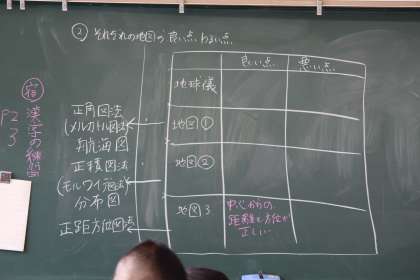 ② それぞれの地図の良い点 わるい点
良い点
悪い点
地球儀
地図①
地図②
地図3
中心からの
距離と方位が
正しい
正角図法
(メルカトル図法)
航海図
正積図法
(モルワイデ図法)
分布図
正距方位図法
宿
漢字の練習
P2
3